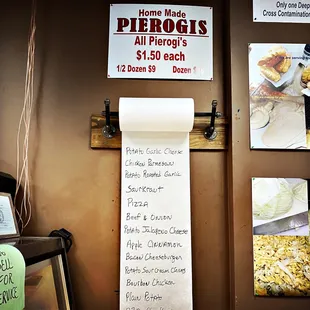 Home Made
PIEROGIS
All Pierogi's
$1.50 each
1/2 Dozen $9 Dozen $
only one Deep
Cross Contamination
Potato Garlic Cheese
Chicken Parmesan
Potato Roasted Garlic
Saurkraut
Pizza
Beef & Onion
Potato Jalapeno Cheese
Apple Cinnamon
Bacon Cheeseburger
Potato Sour Cream Chives
Bourbon Chicken
Plain Potato
FOR
SERVICE